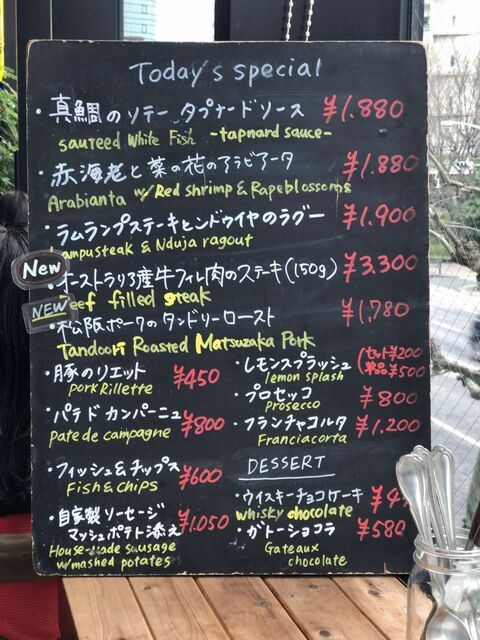 Today's special
・真鯛のソテー タプナードソース ¥1.880
sauteed White Fish -tapnard sauce-
・赤海老と菜の花のアラビアータ ¥1.880
Arabianta w/Red shrimp & Rapeblossoms
・ラムランプステーキとンドゥイヤのラグー ¥1.900
Lampusteak & Nduja ragout
New
・オーストラリア産牛フィレ肉のステーキ(150g) ¥3.300
Beef filled steak
NEW
・松阪ポークのタンドリーロースト ¥1,780
Tandoori Roasted Matsuzaka Pork
・豚のリエット ¥450
pork Rillette
・パテドカンパーニュ ¥800
pate de campagne
・フィッシュ&チップス ¥600
Fish & chips
・自家製ソーセージ
マッシュポテト添え ¥1,050
House-made sausage
w/mashed potatoes
・レモンスプラッシュ (セット¥200
lemon splash 単品¥500
・プロセッコ ¥800
Prosecco
・フランチャコルタ ¥1,200
Franciacorta
DESSERT
・ウイスキーチョコケーキ
whisky chocolate
・ガトーショコラ ¥580
Gateaux
chocolate